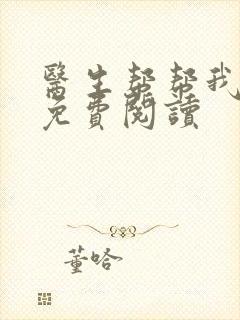 醫生幫幫我
免費閱讀
董哈